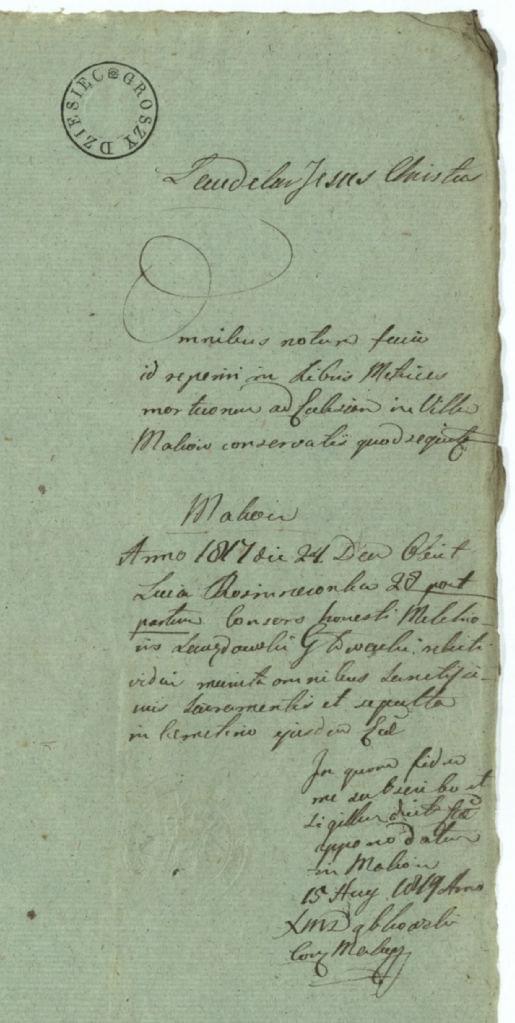 DZIESIĘC GROSZY
Laudetur Jesus Christus
Omnibus notum facio
id reperiri in Libris Metrices
mortuorum ad Ecclesiam in Villa
conservatis quod sequitur
Anno 1817 die 24 Obiit
Lucia 28 post
partum Consors honesti Melchio-
ris relicti
vidui munita omnibus Sanctissi-
mis Sacramentis et sepulta
in Cemeterio ejusdem Eccl
In quorum fidem
me subscribo et
Sigillum
appono datum
in
15 Aug 1819 Anno